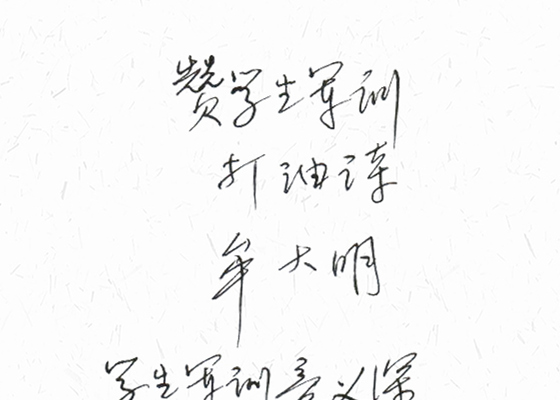 赞学生军训
打油诗
牟大明
学生军训意义深